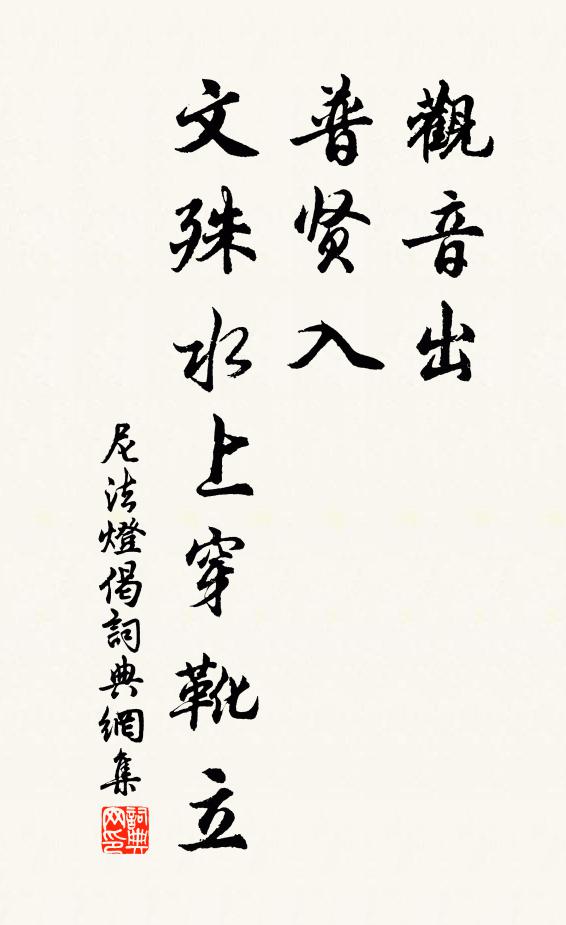 觀音出
普贤入
文殊水上穿靴立
尼法燈偈詞典網集
詞典网印